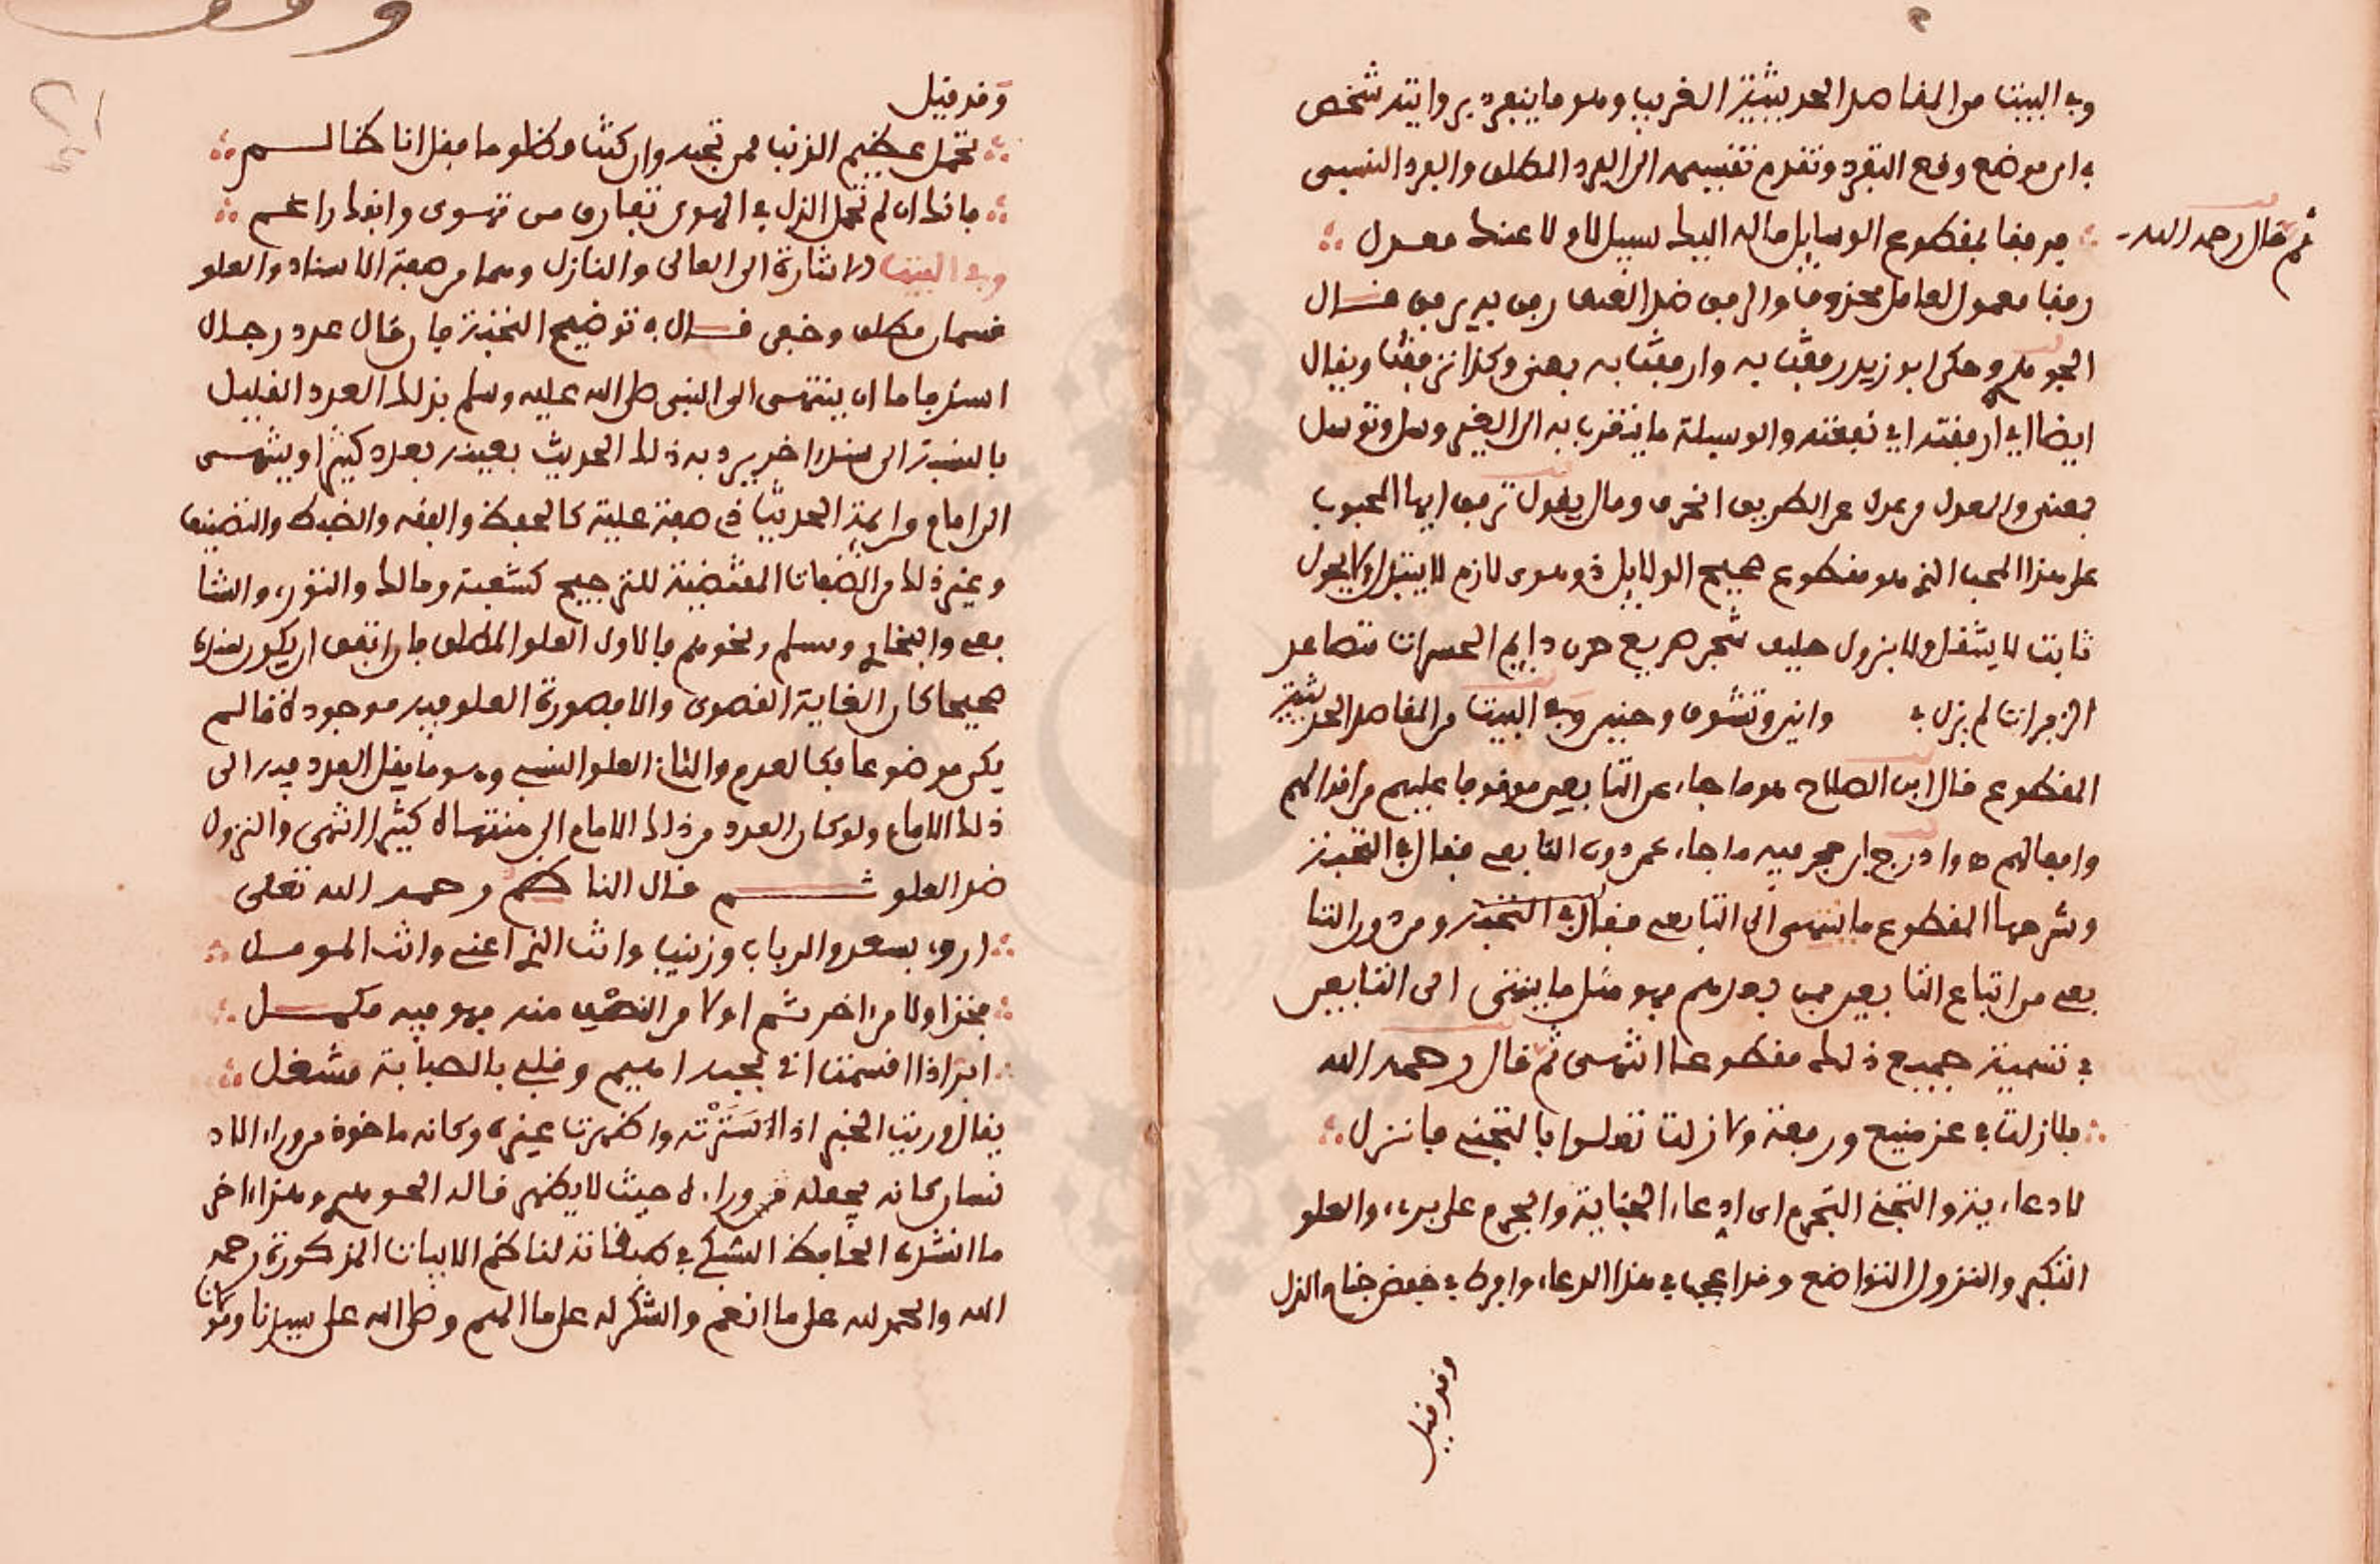 وفي البيت من المقاصد الحديثية الغريب وهو ما ينفرد بروايته شخص
في اي موضع وقع التفرد وتقدم تقسيمه الى الفرد المطلق والفرد النسبي
ثم قال رحمه الله
فرفقا بمقطوع الوسايل ماله اليك سبيل لا ولا عنك معدل
رفقا معمول لعامل محذوف والرفق ضد العنف رفق به يرفق قال
الجوهري وحكى ابو زيد رفقت به وارفقت به بمعنى وكذا ترفقت ويقال
ايضا اي ارفقته اي نفعته والوسيلة ما يتقرب به الى الغير وسل وتوسل
بمعنى والعدل من عدل عن الطريق انحرف وما ل يقول ترفق ايها المحبوب
على هذا المحب الذي هو مقطوع صحيح الدلايل ذو هوى لازم لا يتبدل ولا يحول
ثابت لا ينتقل ولا يزول حليف شجر صريع حزن دايم الحسرات متصاعد
الزفرات لم يزل في وانين وتشوق وحنين وفي البيت من المقاصد الحديثية
المقطوع قال ابن الصلاح هو ما جاء عن التابعين موقوفا عليهم من اقوالهم
وافعالهم ه وادرج ابن حجر فيه ما جاء عمن دون التابعي فقال في النخبة
وشرحها المقطوع ما ينتهي الى التابعي فقال في النخبة ومن دون التا
بعي من اتباع التابعين فمن بعدهم فهو مثل ما ينتهي الى التابعين
في تسمية جميع ذلك مقطوعا انتهى ثم قال رحمه الله
فلا زلت في عز منيع ورفعة ولا زلت تعلوا بالتجني فانزل
لا دعاءية والتجني التجرم اي ادعاء الجناية والجرم على بريء والعلو
التكبر والنزول التواضع وقد اعجب في هذا الدعاء وافرط في خفض جناح الذل
وقد قيل
وقد قيل
تحمل عظيم الذنب ممن تحبه وان كنت مظلوما فقل انا ظالم
فانك ان لم تحمل الذل في الهوى تفارق من تهوى وانفك راغم
وفي البيت الاشارة الى العالي والنازل وهما من صفة الاسناد والعلو
قسمان مطلق وخفى قال في توضيح النخبة فان قال عدد رجال
السند فاما ان ينتهي الى النبي صلى الله عليه وسلم بذلك العدد القليل
بالنسبة الى سند اخر يرد به ذلك الحديث بعينه بعدد كثير او ينتهي
الى امام من ايمة الحديث ذي صفة علية كالحفظ والفقه والضبط والتصنيف
وغير ذلك من الصفات المقتضية للترجيح كشعبة ومالك والثوري والشا
فعي والبخاري ومسلم ونحوهم فالاول العلو المطلق فان اتفق ان يكون سنده
صحيحا كان الغاية القصوى والا فصورة العلو فيه موجودة ما لم
يكن موضوعا فكالعدم والثاني العلو النسبي وهو ما يقل العدد فيه الى
ذلك الامام ولو كان العدد من ذلك الامام الى منتهاه كثيرا انتهى والنزول
ضد العلو ثم قال الناظم رحمه الله تعلى
اروي بسعد والرباب وزينب وانت الذي اعني وانت المؤمل
فخذ اولا من اخر ثم اولا من النصف منه فهو فيه مكمل
ابر اذا اقسمت اني بحبه اهيم وقلبي بالصبابة مشغل
يقال وريت الخبر اذا استرته واظهرت غيره وكانه ماخوذ من وراء الا
نسان كانه يجعله من وراءه حيث لا يظهر قاله الجوهري وهذا اخر
ما انشده الحافظ السبكي في طبقاته لناظم الابيات المذكورة رحمه
الله والحمد لله على ما انعم والشكر له على ما الهم وصلى الله على سيدنا ومولانا